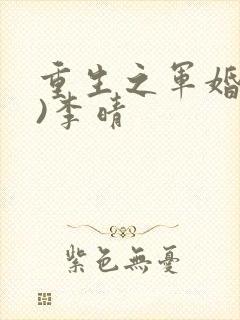 重生之軍婚
)李晴
紫色無憂